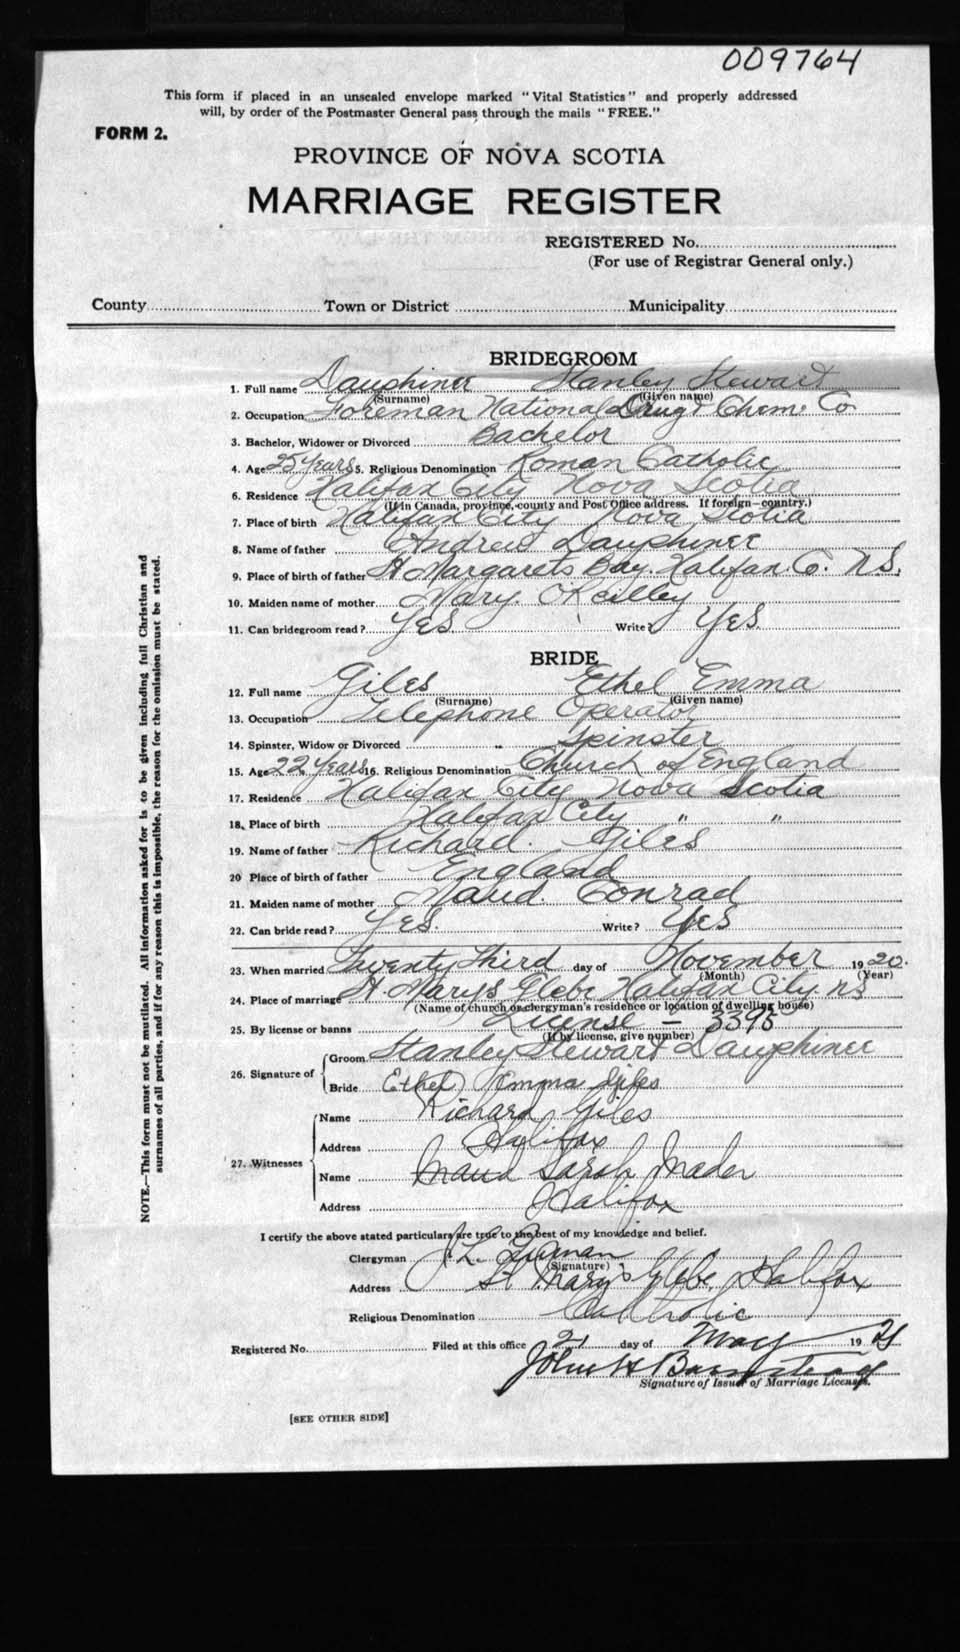 009764
This form if placed in an unsealed envelope marked "Vital Statistics" and properly addressed
will, by order of the Postmaster General pass through the mails "FREE."
FORM 2.
PROVINCE OF NOVA SCOTIA
MARRIAGE REGISTER
REGISTERED No.
(For use of Registrar General only.)
County Town or District Municipality
BRIDEGROOM
1. Full name Dauphinee Stanley Stewart
(Surname) (Given name)
2. Occupation Foreman National Drug & Chem. Co
3. Bachelor, Widower or Divorced Bachelor
4. Age 25 Years 5. Religious Denomination Roman Catholic
6. Residence Halifax City Nova Scotia
(If in Canada, province, county and Post Office address. If foreign—country.)
7. Place of birth Halifax City Nova Scotia
8. Name of father Andrew Dauphinee
9. Place of birth of father St Margarets Bay. Halifax. Co. N.S.
10. Maiden name of mother Mary. O'Reilley
11. Can bridegroom read? Yes. Write? Yes.
BRIDE
12. Full name Giles Ethel Emma
(Surname) (Given name)
13. Occupation Telephone Operator
14. Spinster, Widow or Divorced Spinster
15. Age 22 Years 16. Religious Denomination Church of England
17. Residence Halifax City Nova Scotia
18. Place of birth Halifax City " "
19. Name of father Richard. Giles
20 Place of birth of father England
21. Maiden name of mother Maud. Conrad
22. Can bride read? Yes. Write? Yes
23. When married Twenty Third day of November 1920.
(Month) (Year)
24. Place of marriage St. Marys Glebe Halifax City. NS
(Name of church or clergyman's residence or location of dwelling house)
25. By license or banns License — 3395
(If by license, give number)
26. Signature of Groom Stanley Stewart Dauphinee
Bride Ethel Emma Giles
27. Witnesses Name Richard Giles
Address Halifax
Name Maud Sarah Mader
Address Halifax
I certify the above stated particulars are true to the best of my knowledge and belief.
Clergyman J. L.
(Signature)
Address St Mary's Glebe Halifax
Religious Denomination Catholic
Registered No. Filed at this office 21 day of May 1921
John H Barnstead
Signature of Issuer of Marriage Licenses.
[SEE OTHER SIDE]
NOTE.—This form must not be mutilated. All information asked for is to be given including full Christian and
surnames of all parties, and if for any reason this is impossible, the reason for the omission must be stated.